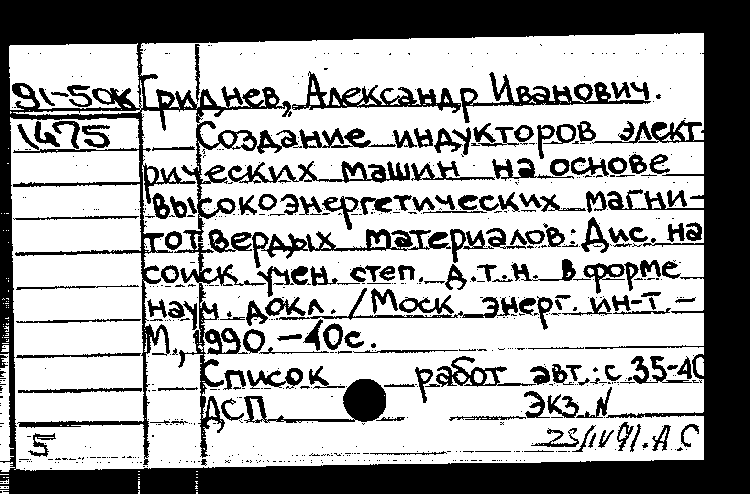 91-50к Гриднев, Александр Иванович.
1475 Создание индукторов элект-
рических машин на основе
высокоэнергетических магни-
тотвердых материалов: Дис. на
соиск. учен. степ. д.т.н. в форме
науч. докл. / Моск. энерг. ин-т. -
М., 1990. - 40с.
Список работ авт.: с. 35-40
ДСП. Экз. N
5 23/IV 91. А С